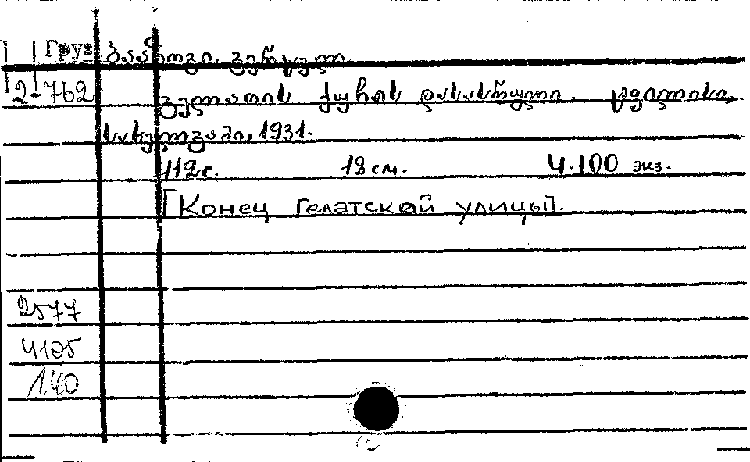 Груз ბააზოვი, გერცელ
2-762 გელათის ქუჩის დასასრული. ტფილისი,
სახელგამი, 1931.
112с. 18 см. 4.100 экз.
[Конец Гелатской улицы].
2577
1.40